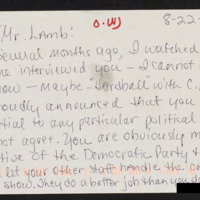 O.W 8-22-
Mr. Lamb:
Several months ago, I watched
interviewed you - I cannot
ow - Maybe "Hardball" with C.
oudly announced that you
tial to any particular political
not agree. You are obviously m
tive of the Democratic Party &
let your other staff handle the
show. They do a better job than you d